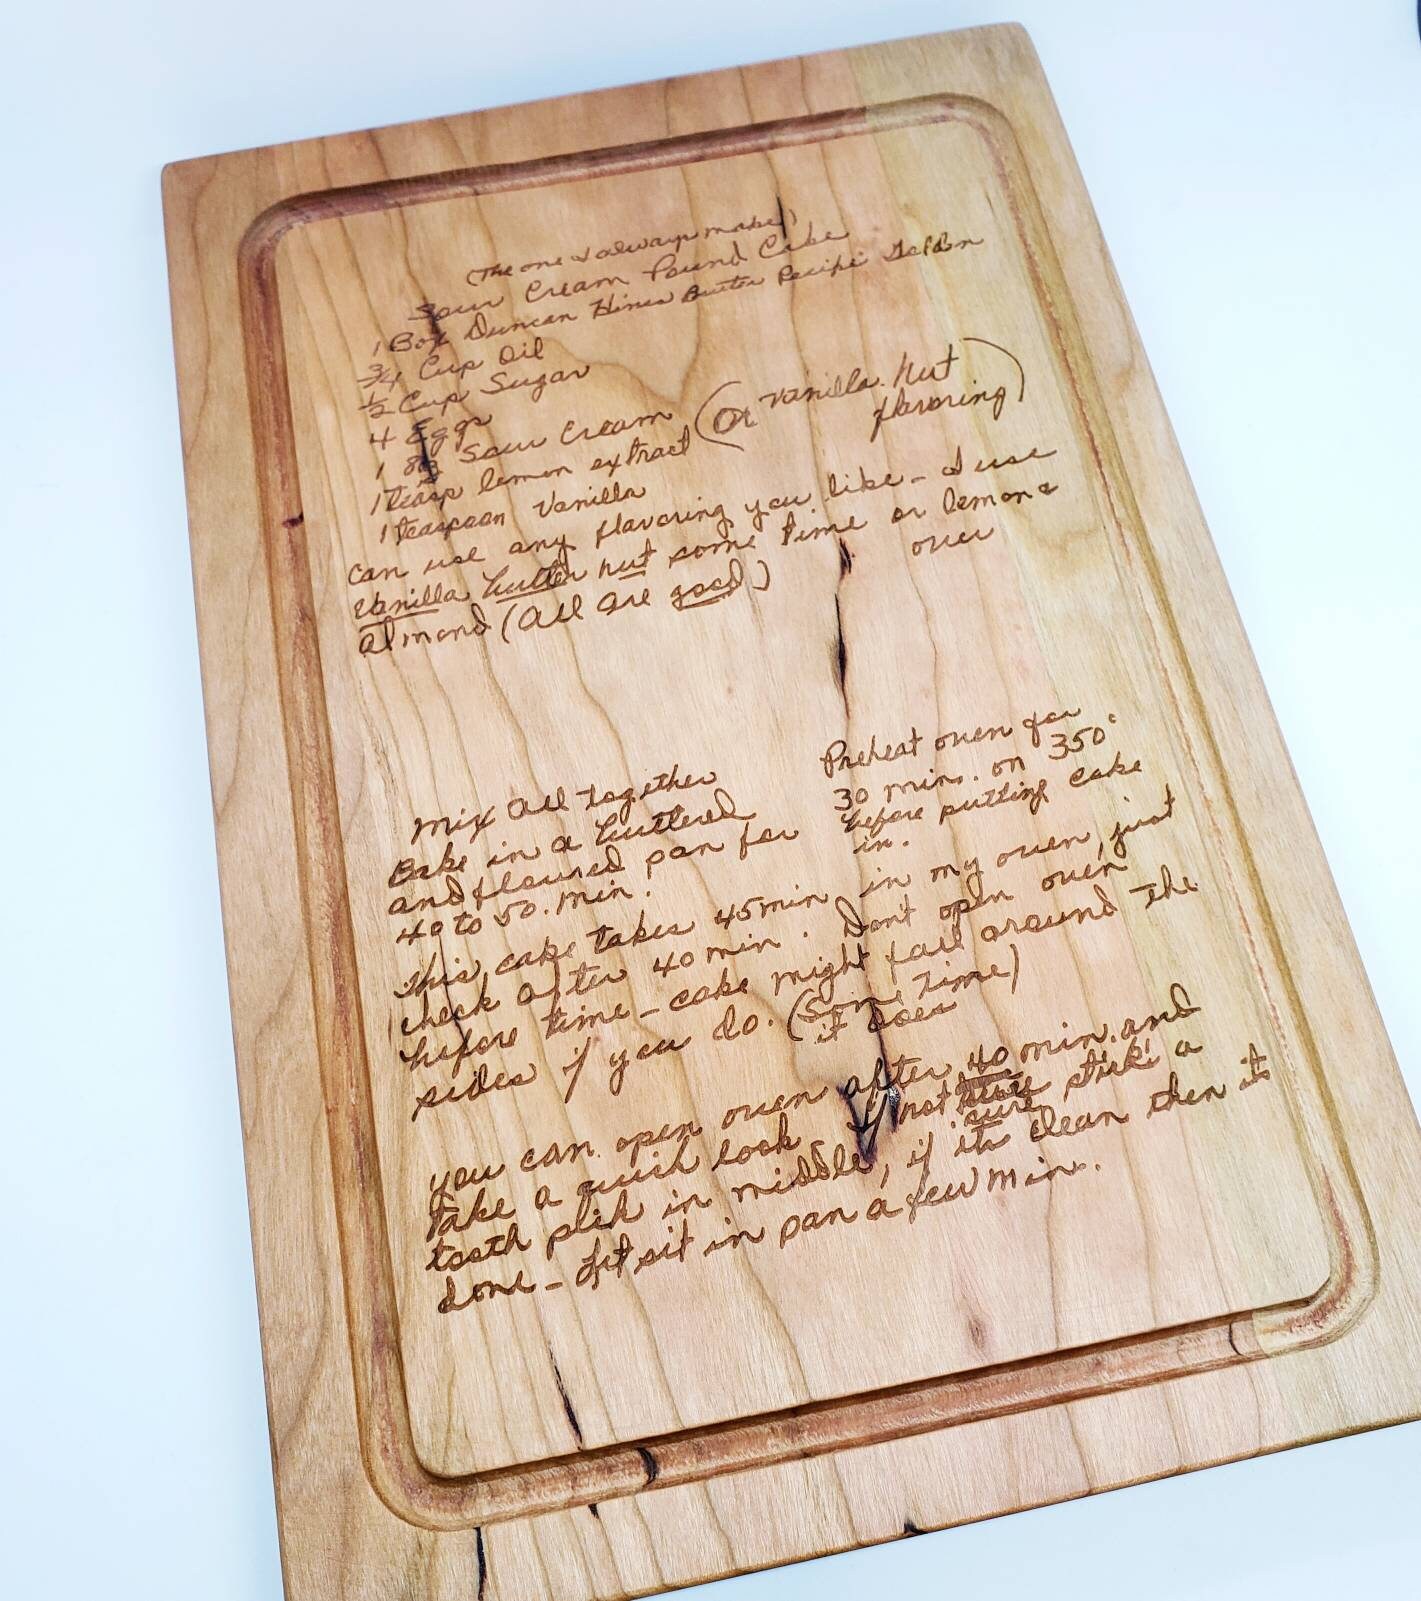 (The one I always make)
Sour Cream Pound Cake
1 Box Duncan Hines Butter Recipe Golden
3/4 Cup Oil
1/2 Cup Sugar
4 Eggs
1 8oz Sour Cream
1 teasp lemon extract (Or Vanilla. Nut flavoring)
1 teaspoon Vanilla
Can use any flavoring you like - I use
Vanilla butter nut some time or lemon &
almond (all are good) over
Preheat oven for
30 min. on 350°
before putting cake
in.
Mix all together
Bake in a buttered
and floured pan for
40 to 50. min.
This cake takes 45 min in my oven, just
check after 40 min. Don't open oven
before time - cake might fall around the
sides if you do. (Some time)
it does
you can open oven after 40 min. and
take a quick look - if not sure stick a
tooth pick in middle, if its clean then it
done - Let sit in pan a few min.